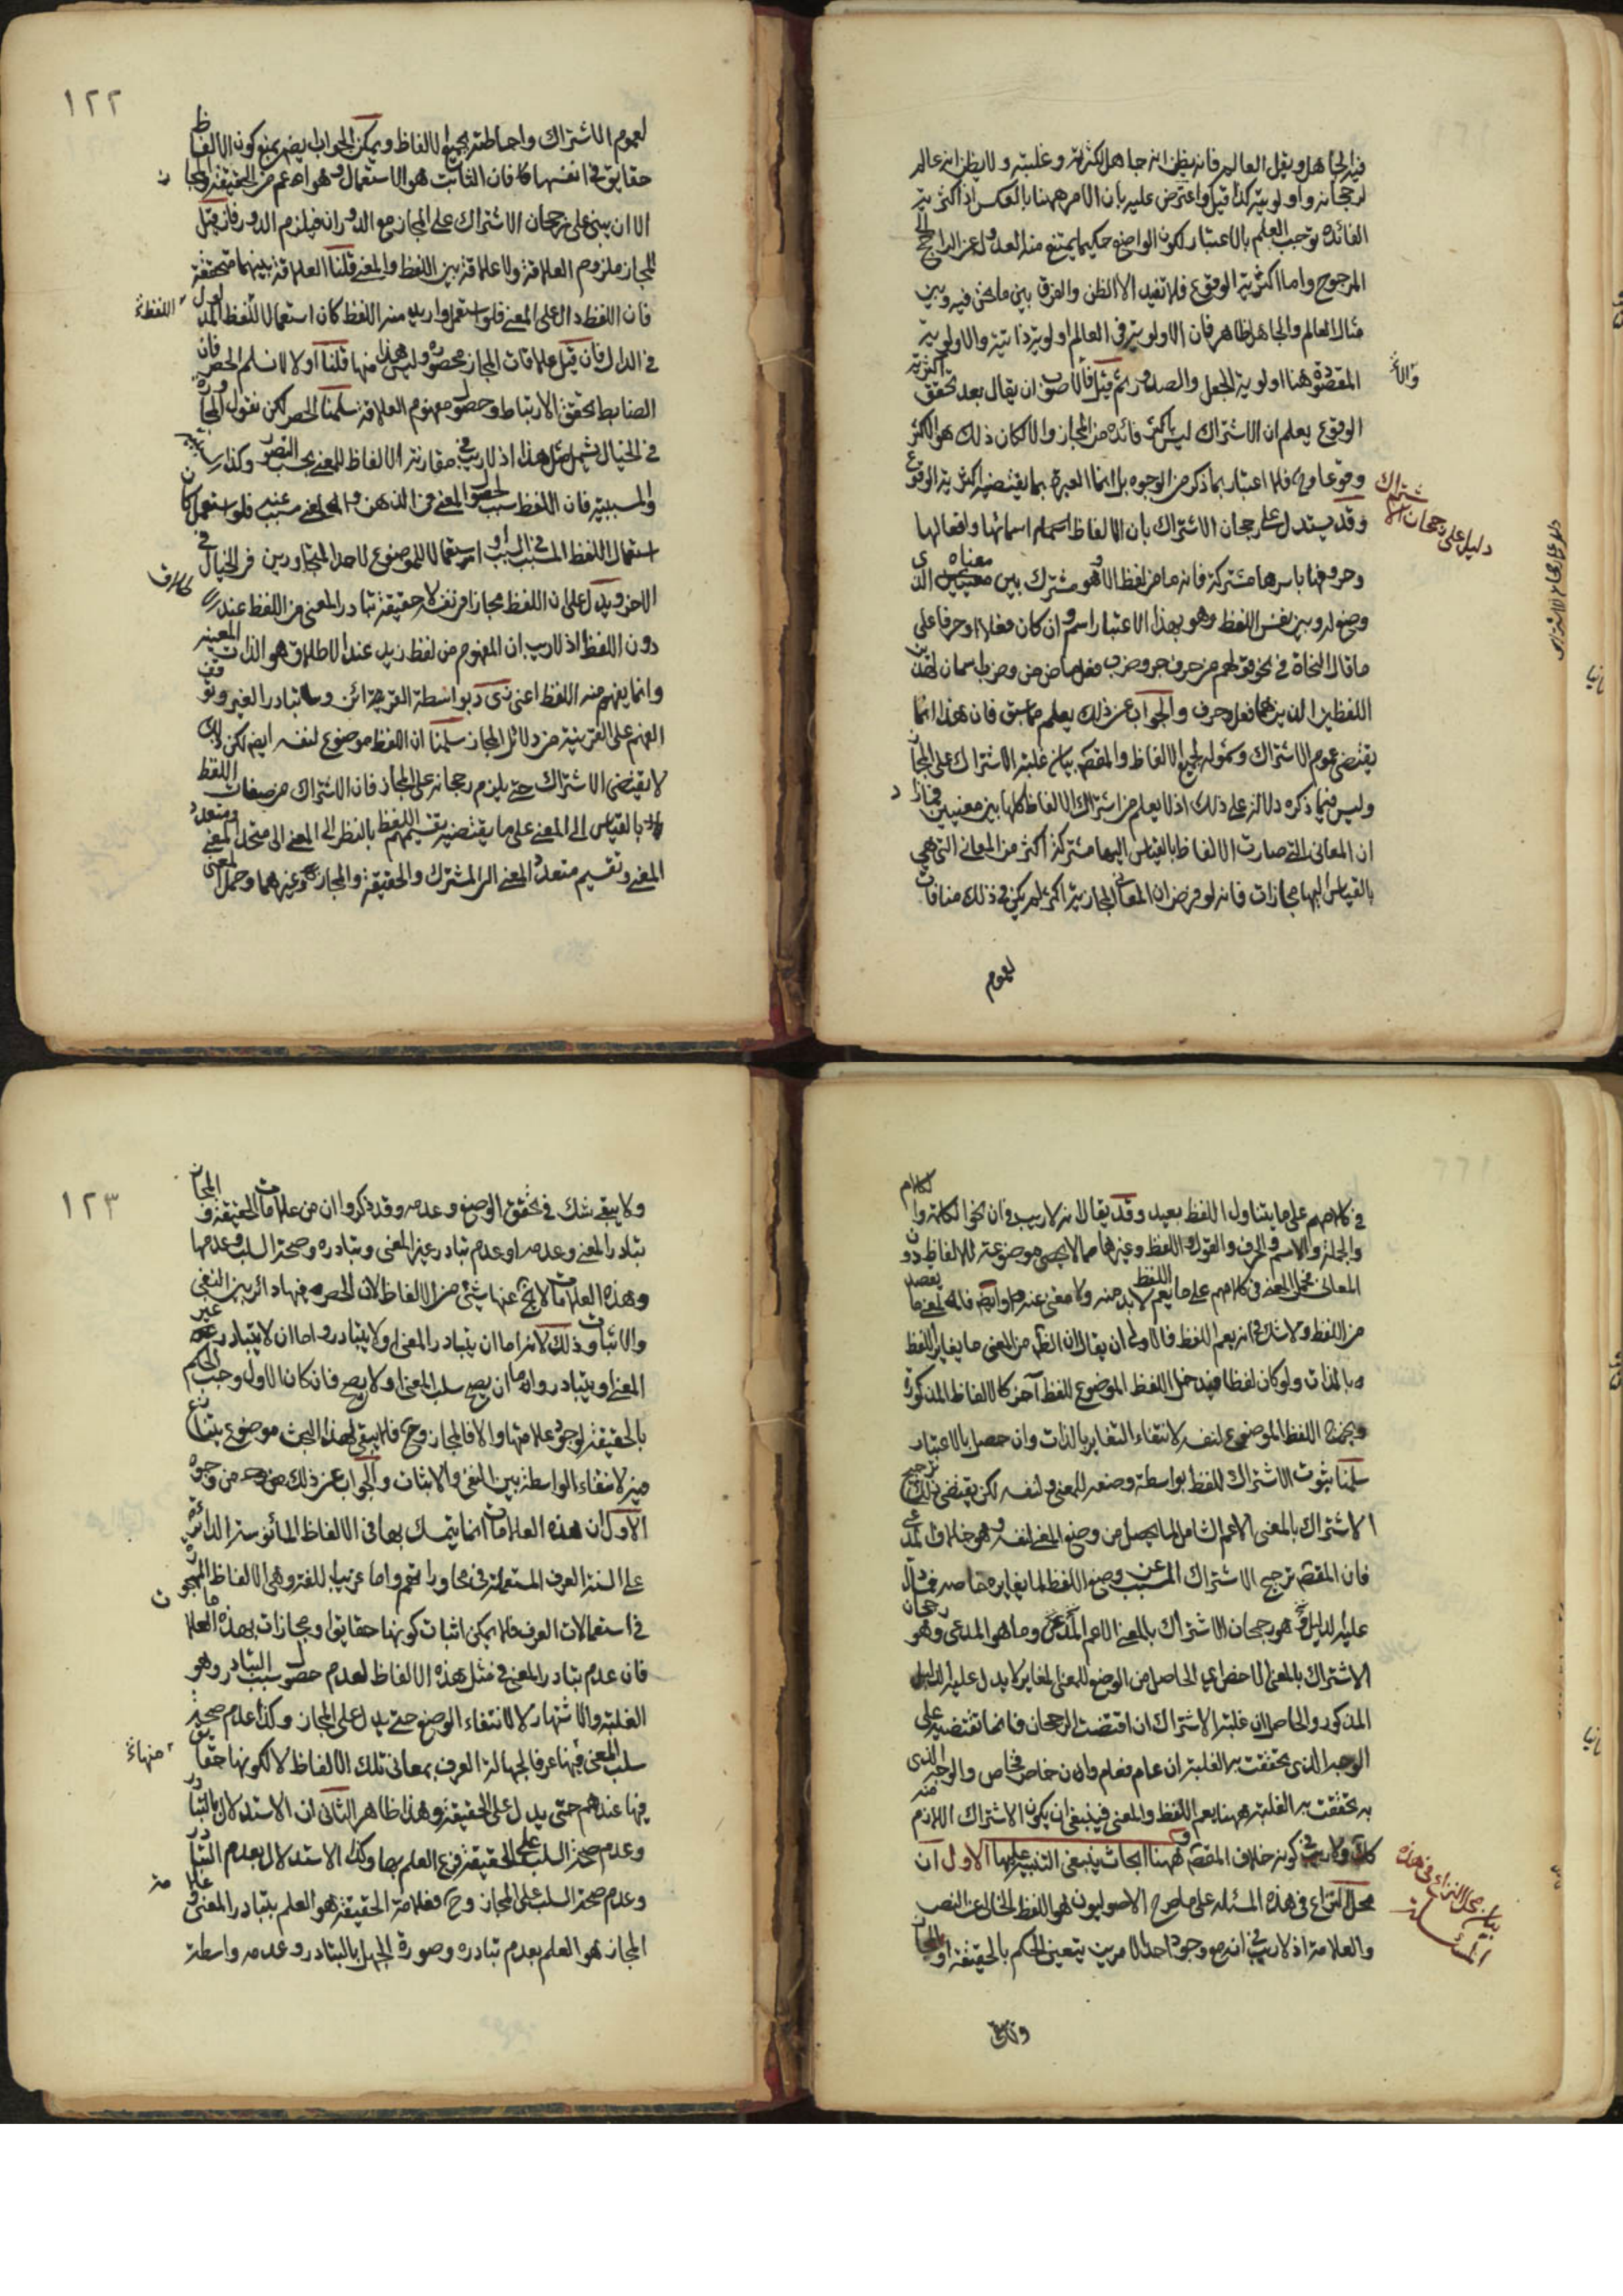 فيه الجاهل ويقل العالم فانه يظن انه جاهل لكثرته وغلبته ولا يظن انه عالم
لرجحانه واولويته كذا قيل واعترض عليه بان الامر ههنا بالعكس اذ اكثرية
الفائدة توجب العلم بالاعتبار لكون الواضع حكيما يمتنع منه العدول عن الراجح الى
المرجوح واما اكثرية الوقوع فلا تفيد الا الظن والفرق بين ما نحن فيه وبين
مثال العالم والجاهل ظاهر فان الاولوية في العالم اولوية ذاتية والاولوية
المقصودة هنا اولوية الجعل والصدور ثم قيل فالاصوب ان يقال بعد تحقق اكثرية
الوقوع يعلم ان الاشتراك ليس باكثر فائدة من المجاز والا لكان ذلك هو الاكثر
وقوعا وح فلا اعتبار بما ذكر من الوجوه بل انما العبرة بما يقتضيه اكثرية الوقوع
وقد يستدل على رجحان الاشتراك بان الالفاظ اسمائها وافعالها
دليل على رجحان الاشتراك
وحروفها باسرها مشتركة فانه ما من لفظ الا وهو مشترك بين معناه الذي
وضع له وبين نفس اللفظ وهو بهذا الاعتبار اسم وان كان فعلا او حرفا على
ما قال النحاة في نحو قولهم من حرف جر وضرب فعل ماض من وضرب اسمان لهذين
اللفظين الذين هما فعل وحرف والجواب عن ذلك يعلم مما سبق فان هذا انما
يقتضى عموم الاشتراك وشموله لجميع الالفاظ والمقصود بيان غلبة الاشتراك على المجاز
وليس فيما ذكره دلالة على ذلك اذ لا يعلم من اشتراك الالفاظ كلها بين معنيين فما زاد
ان المعاني التي صارت الالفاظ بالقياس اليها مشتركة اكثر من المعاني التي هي
بالقياس اليها مجازات فانه لو فرض ان المعاني المجازية اكثر لم يكن في ذلك منافاة
لعموم
١٢٢
لعموم الاشتراك واحاطته بجميع الالفاظ ويمكن الجواب ايضا بمنع كون الالفاظ
حقايق في انفسها فان الثابت هو الاستعمال وهو اعم من الحقيقة والمجاز
الا ان يبنى على رجحان الاشتراك على المجاز مع الدوران فيلزم الدور فان قيل
المجاز ملزوم العلاقة ولا علاقة بين اللفظ والمعنى قلنا العلاقة بينهما متحققة
فان اللفظ دال على المعنى فلو استعمل واريد منه اللفظ كان استعمالا للفظ المدلول
في الدال فان قيل علاقات المجاز محصورة وليس هذا منها قلنا اولا لا نسلم الحصر فان
الضابط تحقق الارتباط وحصول مفهوم العلاقة سلمنا الحصر لكن نقول المجاورة
في الخيال يشمل مثل هذا اذ لا ريب في مقارنة الالفاظ للمعنى بحسب التصور وكذا السببية
والمسببية فان اللفظ سبب لحصول المعنى في الذهن والمعنى مسبب عنه فلو استعمل كان
استعمال اللفظ المسبب في السبب او استعمالا للموضوع لاحد المتجاورين في الخيال في
الاخر ويدل على ان اللفظ مجاز في نفسه لا حقيقة تبادر المعنى من اللفظ عند الاطلاق
دون اللفظ اذ لا ريب ان المفهوم من لفظ زيد عند الاطلاق هو الذات المعينة
وانما يفهم منه اللفظ اعنى زى د بواسطة القرائن وتبادر الغير وتوقف
الفهم على القرينة من دلائل المجاز سلمنا ان اللفظ موضوع لنفسه ايضا لكن ذلك
لا يقتضى الاشتراك حتى يلزم رجحانه على المجاز فان الاشتراك من صفات اللفظ
بالقياس الى المعنى على ما يقتضيه تقسيمهم اللفظ بالنظر الى المعنى الى متحد المعنى ومتعدد
المعنى وتقسيم متعدد المعنى الى المشترك والحقيقة والمجاز وغيرهما وحمل المعنى
في كلامهم على ما يتناول اللفظ بعيد وقد يقال انه لا ريب في ان نحو الكلمة والكلام
والجملة والاسم والحرف والقول واللفظ وغيرها مما لا يحصى موضوعة للالفاظ دون
المعاني فحمل المعنى في كلامهم على ما يعم اللفظ لا بد منه ولا مغنى عنه وايضا فالمعنى ما يقصد
من اللفظ ولا شك في انه يعم اللفظ فالاولى ان يقال ان الظاهر من المعنى ما يغاير اللفظ
بالذات ولو كان لفظا فيدخل اللفظ الموضوع للفظ آخر كالالفاظ المذكورة
ويخرج اللفظ الموضوع لنفسه لانتفاء التغاير بالذات وان حصل بالاعتبار
سلمنا ثبوت الاشتراك للفظ بواسطة وضعه للمعنى ولنفسه لكن يقتضى ذلك ترجيح
الاشتراك بالمعنى الاعم الشامل لما يحصل من وضع المعنى لنفسه وهو خلاف المدعى
فان المقصود ترجيح الاشتراك المسبب عن وضع اللفظ لما يغايره خاصة فما دل
عليه الدليل هو رجحان الاشتراك بالمعنى الاعم وما هو المدعى وهو رجحان
الاشتراك بالمعنى الاخص اي الحاصل من الوضع للمعنى المغاير لا يدل عليه الدليل
المذكور والحاصل ان غلبة الاشتراك ان اقتضت الرجحان فانما تقتضيه على
الوجه الذي تحققت به الغلبة ان عام فعام وان خاص فخاص والوجه الذي
به تحققت الغلبة ههنا يعم اللفظ والمعنى فينبغى ان يكون الاشتراك اللازم منه
كذلك ولا ريب في كونه خلاف المقصود وههنا ابحاث ينبغى التنبيه عليها الاول ان
بيان محل النزاع في هذه المسئلة
محل النزاع في هذه المسئلة على ما صرح الاصوليون هو اللفظ الخالي عن النص
والعلامة اذ لا ريب في انه مع وجود احد الامرين يتعين الحكم بالحقيقة او المجاز
١٢٣
ولا يبقى شك في تحقق الوضع وعدمه وقد ذكروا ان من علامات الحقيقة والمجاز
تبادر المعنى وعدمه او عدم تبادر غير المعنى وتبادره وصحة السلب وعدمها
وهذه العلامات لا يخ عنها شيء من الالفاظ لان الحصر فيها دائر بين النفى
والاثبات وذلك لانه اما ان يتبادر المعنى او لا يتبادر واما ان لا يتبادر غير
المعنى او يتبادر واما ان يصح سلب المعنى او لا يصح فان كان الاول وجب الحكم
بالحقيقة لوجود علامتها والا فالمجاز وح فلا يبقى لهذا البحث موضوع يتنازع
فيه لانتفاء الواسطة بين النفى والاثبات والجواب عن ذلك من وجوه
الاول ان هذه العلامات انما يتمسك بها في الالفاظ المأنوسة الدائرة
على السنة العرف المستعملة في محاوراتهم واما غريب اللغة وهى الالفاظ المهجورة
في استعمالات العرف فلا يمكن اثبات كونها حقايق او مجازات بهذه العلامات
فان عدم تبادر المعنى في مثل هذه الالفاظ لعدم حصول سبب التبادر وهو
الغلبة والاشتهار لا لانتفاء الوضع حتى يدل على المجاز وكذا عدم صحة
سلب المعنى فيها عرفا لجهالة العرف بمعاني تلك الالفاظ لا لكونها حقايق
فيها عندهم حتى يدل على الحقيقة وهذا ظاهر الثاني ان الاستدلال بالتبادر
وعدم صحة السلب على الحقيقة فرع العلم بها وكذا الاستدلال بعدم التبادر
وعدم صحة السلب على المجاز وح فعلامة الحقيقة هو العلم بتبادر المعنى وعلامة
المجاز هو العلم بعدم تبادره وصورة الجهل بالتبادر وعدمه واسطة